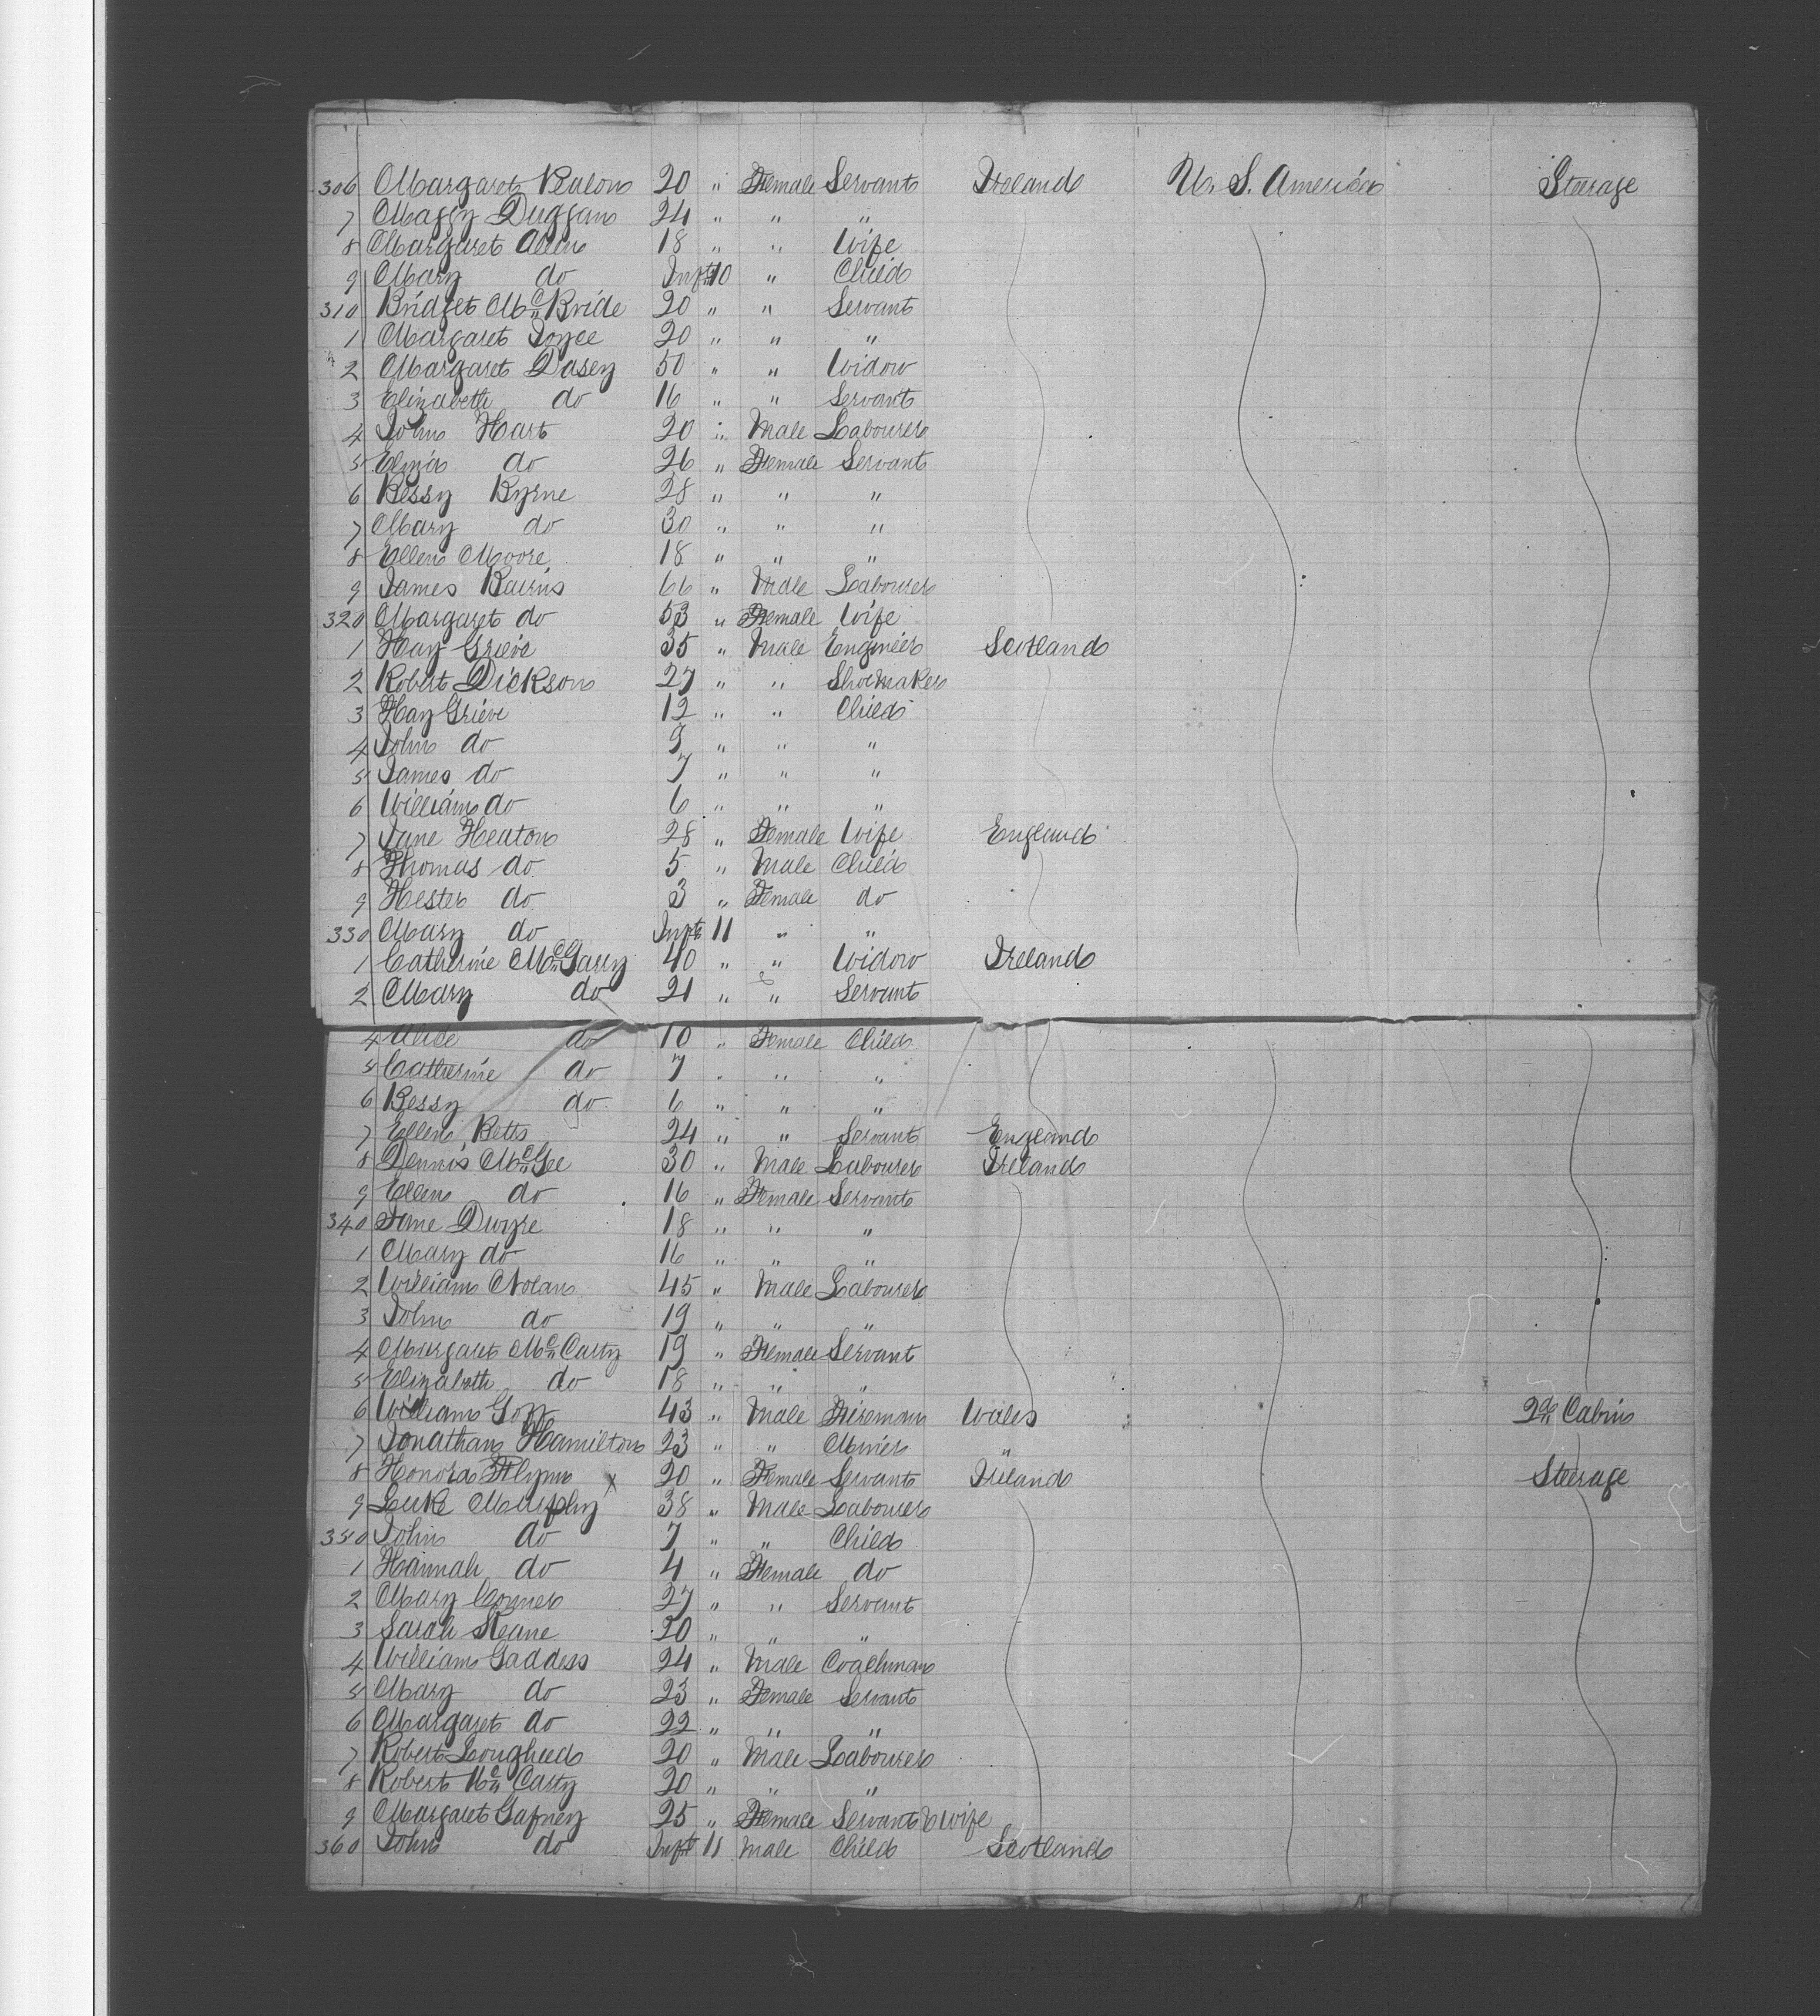 306 Margaret Realon 20 " Female Servant Ireland U. S. America Steerage
7 Maggy Duggan 24 " " "
8 Margaret Allen 18 " " Wife
9 Mary do Inft 10 " Child
310 Bridget Mc Bride 20 " " Servant
1 Margaret Joyce 20 " " "
2 Margaret Dasey 50 " " Widow
3 Elizabeth do 16 " " Servant
4 John Hart 20 " Male Labourer
5 Eliza do 26 " Female Servant
6 Bessy Byrne 28 " " "
7 Mary do 30 " " "
8 Ellen Moore 18 " " "
9 James Bairns 66 " Male Labourer
320 Margaret do 53 " Female Wife
1 Hay Grieve 35 " Male Engineer Scotland
2 Robert Dickson 27 " " Shoemaker
3 Hay Grieve 12 " " Child
4 John do 9 " " "
5 James do 7 " " "
6 William do 6 " " "
7 Jane Heaton 28 " Female Wife England
8 Thomas do 5 " Male Child
9 Hester do 3 " Female do
330 Mary do Inft 11 " "
1 Catherine Mc Garry 40 " " Widow Ireland
2 Mary do 21 " " Servant
4 Alice do 10 " Female Child
5 Catherine do 7 " " "
6 Bessy do 6 " " "
7 Ellen Betts 24 " " Servant England
8 Dennis Mc Gee 30 " Male Labourer Ireland
9 Ellen do 16 " Female Servant
340 Jane Dwyre 18 " " "
1 Mary do 16 " " "
2 William Nolan 45 " Male Labourer
3 John do 19 " " "
4 Margaret Mc Carty 19 " Female Servant
5 Elizabeth do 18 " " "
6 William Goff 43 " Male Fireman Wales 2d Cabin
7 Jonathan Hamilton 23 " " Miner "
8 Honora Flynn x 20 " Female Servant Ireland Steerage
9 Luke Murphy 38 " Male Labourer
350 John do 7 " " Child
1 Hannah do 4 " Female do
2 Mary Conner 27 " " Servant
3 Sarah Keane 20 " " "
4 William Gaddess 24 " Male Coachman
5 Mary do 23 " Female Servant
6 Margaret do 22 " " "
7 Robert Lougheed 20 " Male Labourer
8 Robert Mc Carty 20 " " "
9 Margaret Gafney 25 " Female Servant & wife
360 John do Inft 11 Male Child Scotland